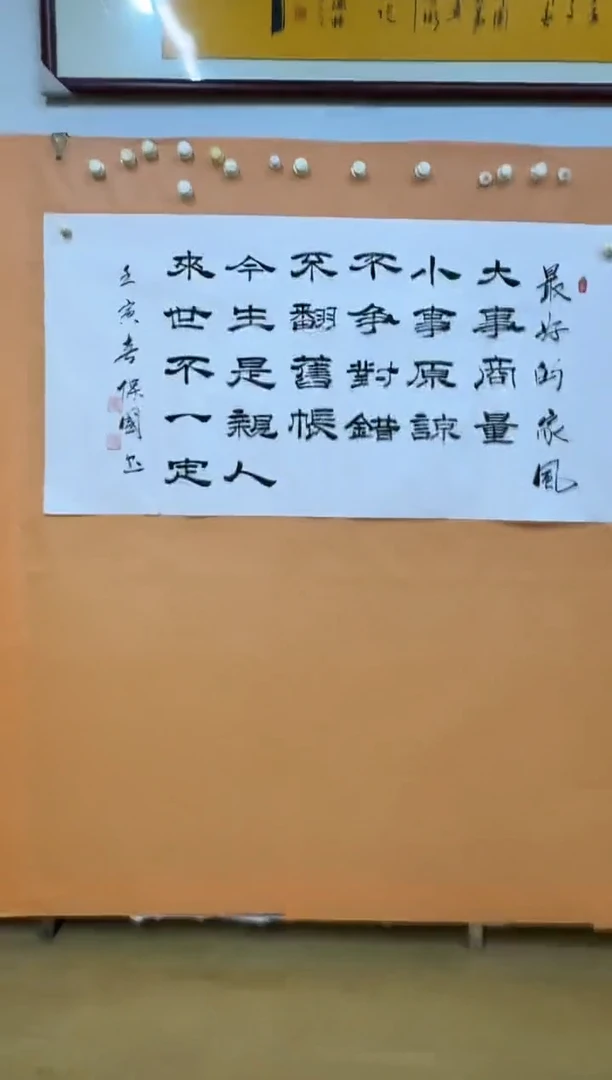 最好的家风
大事商量
小事原諒
不争對錯
不翻舊帳
今生是親人
來世不一定
壬寅春保國书